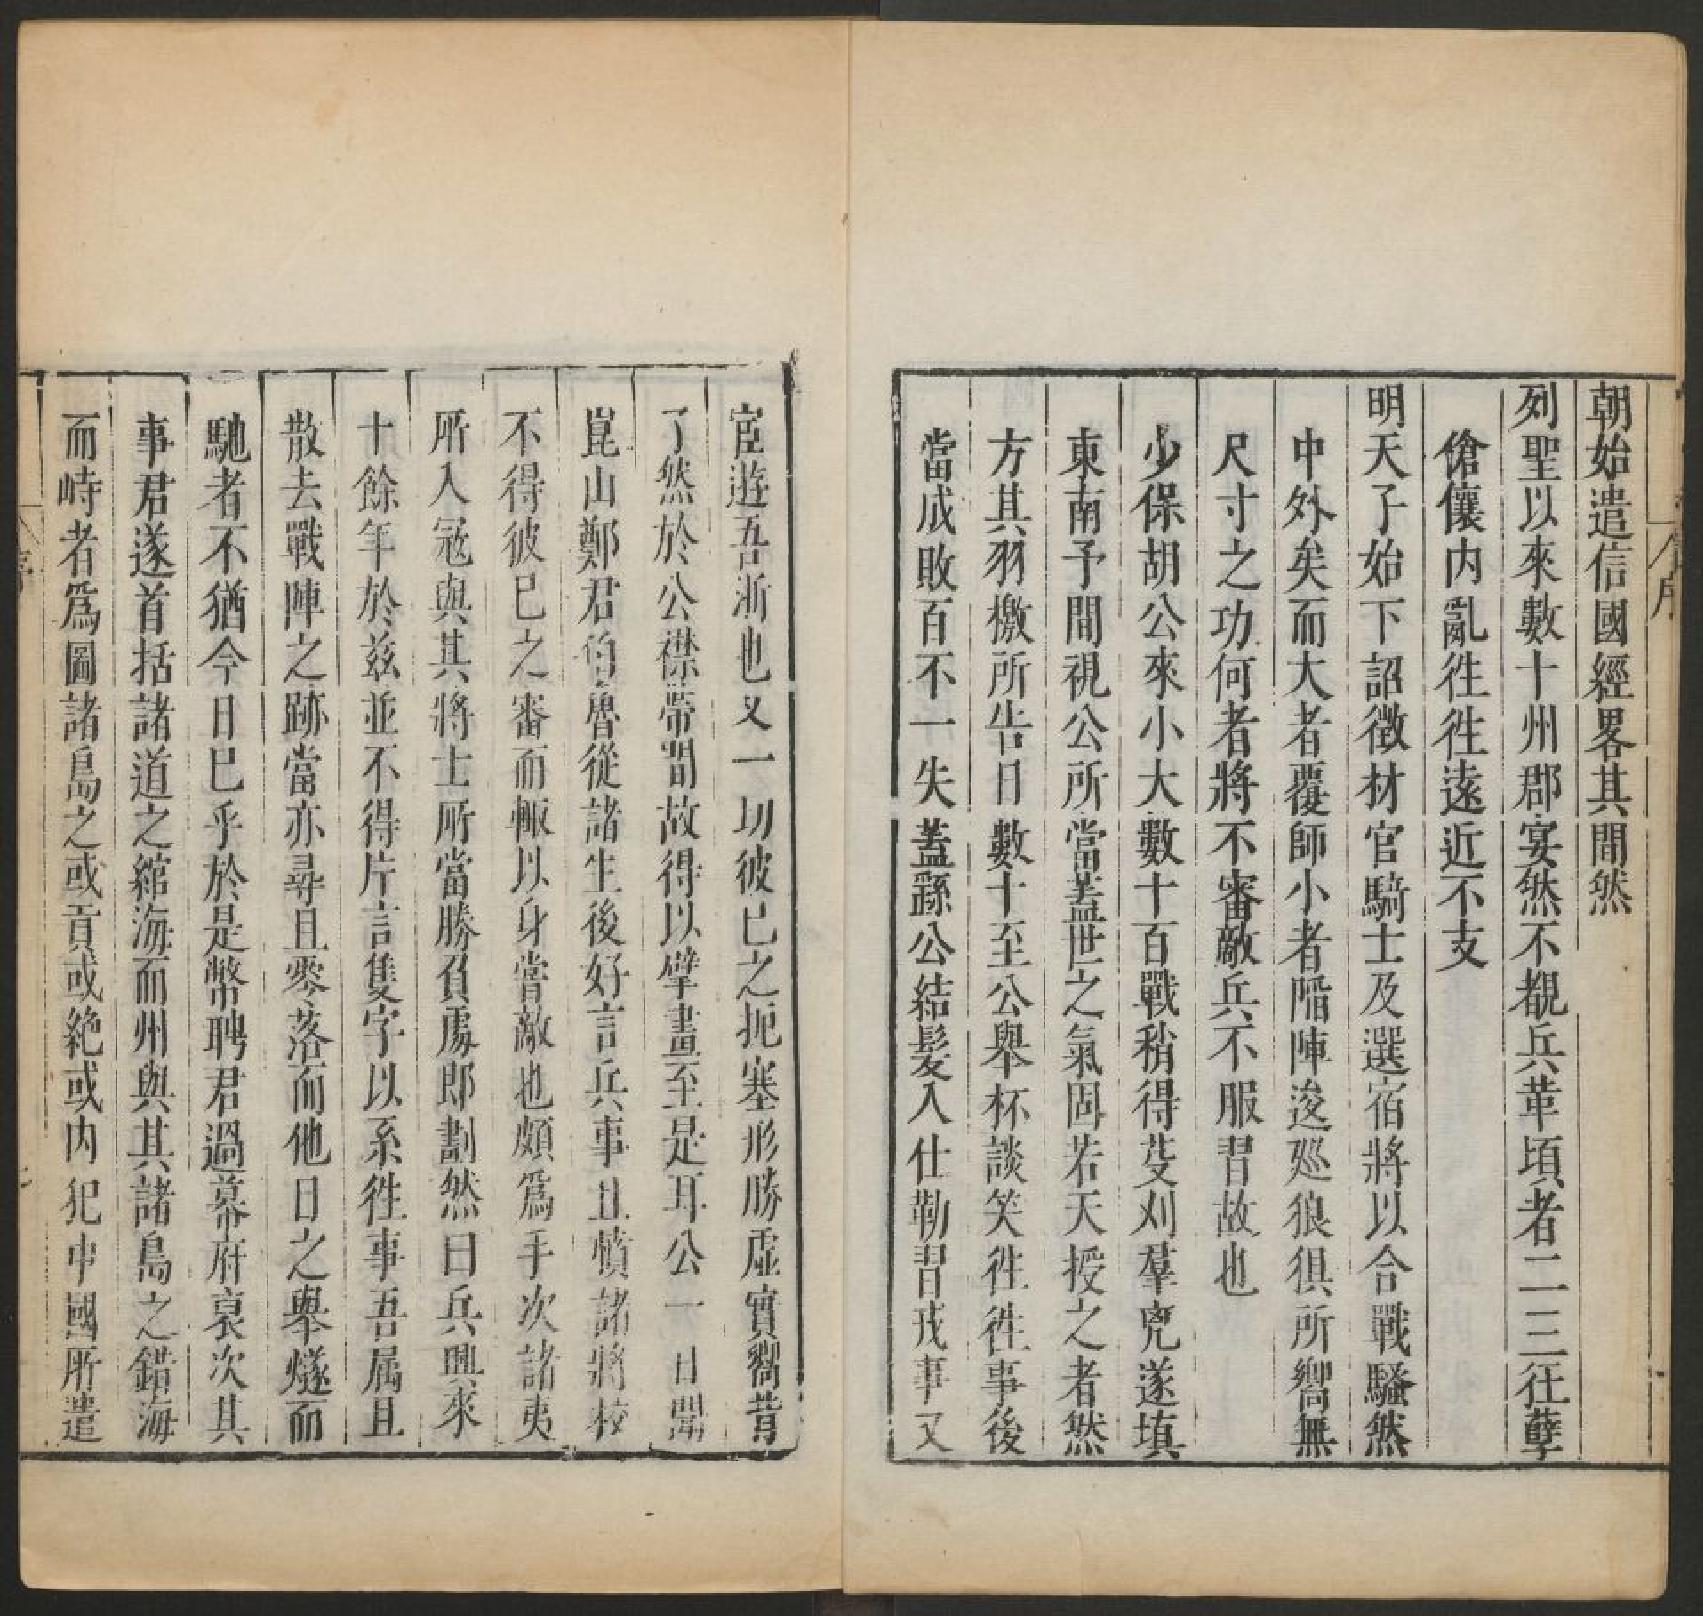 朝始遣信國經畧其間然
列聖以來數十州郡宴然不覩兵革頃者二三枉孽
傖儴内亂徃徃遠近不支
明天子始下詔徵材官騎士及選宿將以合戰騷然
中外矣而大者覆師小者陷陣逡廵狼俱所嚮無
尺寸之功何者將不審敵兵不服習故也
少保胡公來小大數十百戰稍得芟刈羣兇遂填
東南予間視公所當蓋世之氣固若天授之者然
方其羽檄所告日數十至公舉杯談笑徃徃事後
當成敗百不一失蓋繇公結髪入仕勒習戎事又
宦遊吾浙也又一切彼已之扼塞形勝虛實嚮昔
了然於公襟帶間故得以擘畫至是耳公一日聞
崑山鄭君伯魯從諸生後好言兵事且憤諸將校
不得彼已之審而輙以身嘗敵也頗爲手次諸夷
所入冦與其將士所當勝負處即劃然曰兵興來
十餘年於兹並不得片言隻字以系徃事吾属且
散去戰陣之跡當亦尋且零落而他日之舉燧而
馳者不猶今日已乎於是幣聘君過幕府裒次其
事君遂首括諸道之綰海而州與其諸島之錯海
而峙者爲圖諸島之或貢或絶或内犯中國所遣
序